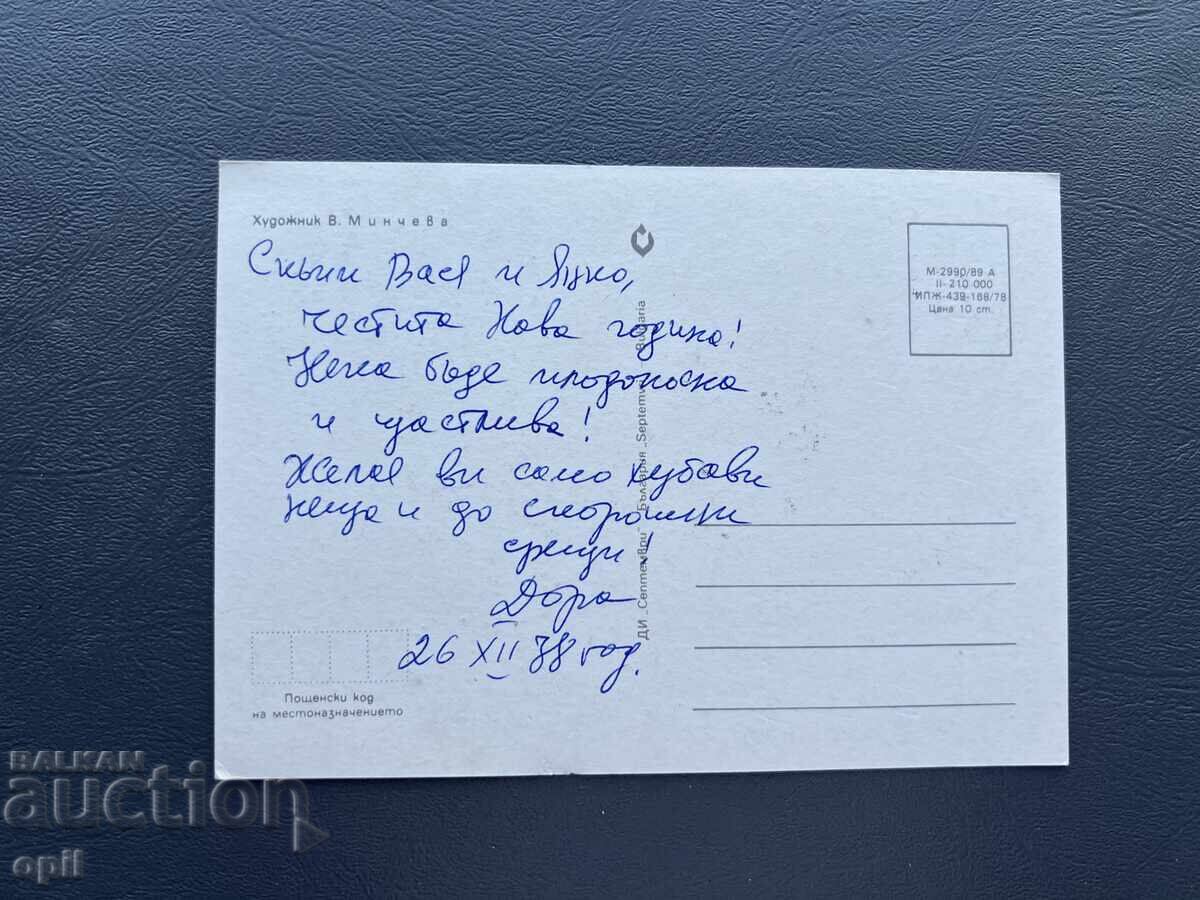 Художник В. Минчева
Скъпи Вася и Яцко,
честита Нова година!
Нека бъде плодоносна
и щастлива!
Желая ви само хубави
неща и до скорошни
срещи!
Дора
26 XII 78 год.
Пощенски код
на местоназначението
ДИ „Септември" България „Septemvri" Bulgaria
М-2990/89 А
II-210 000
ИПЖ-439-168/78
Цена 10 ст.
BALKAN
auction
opil